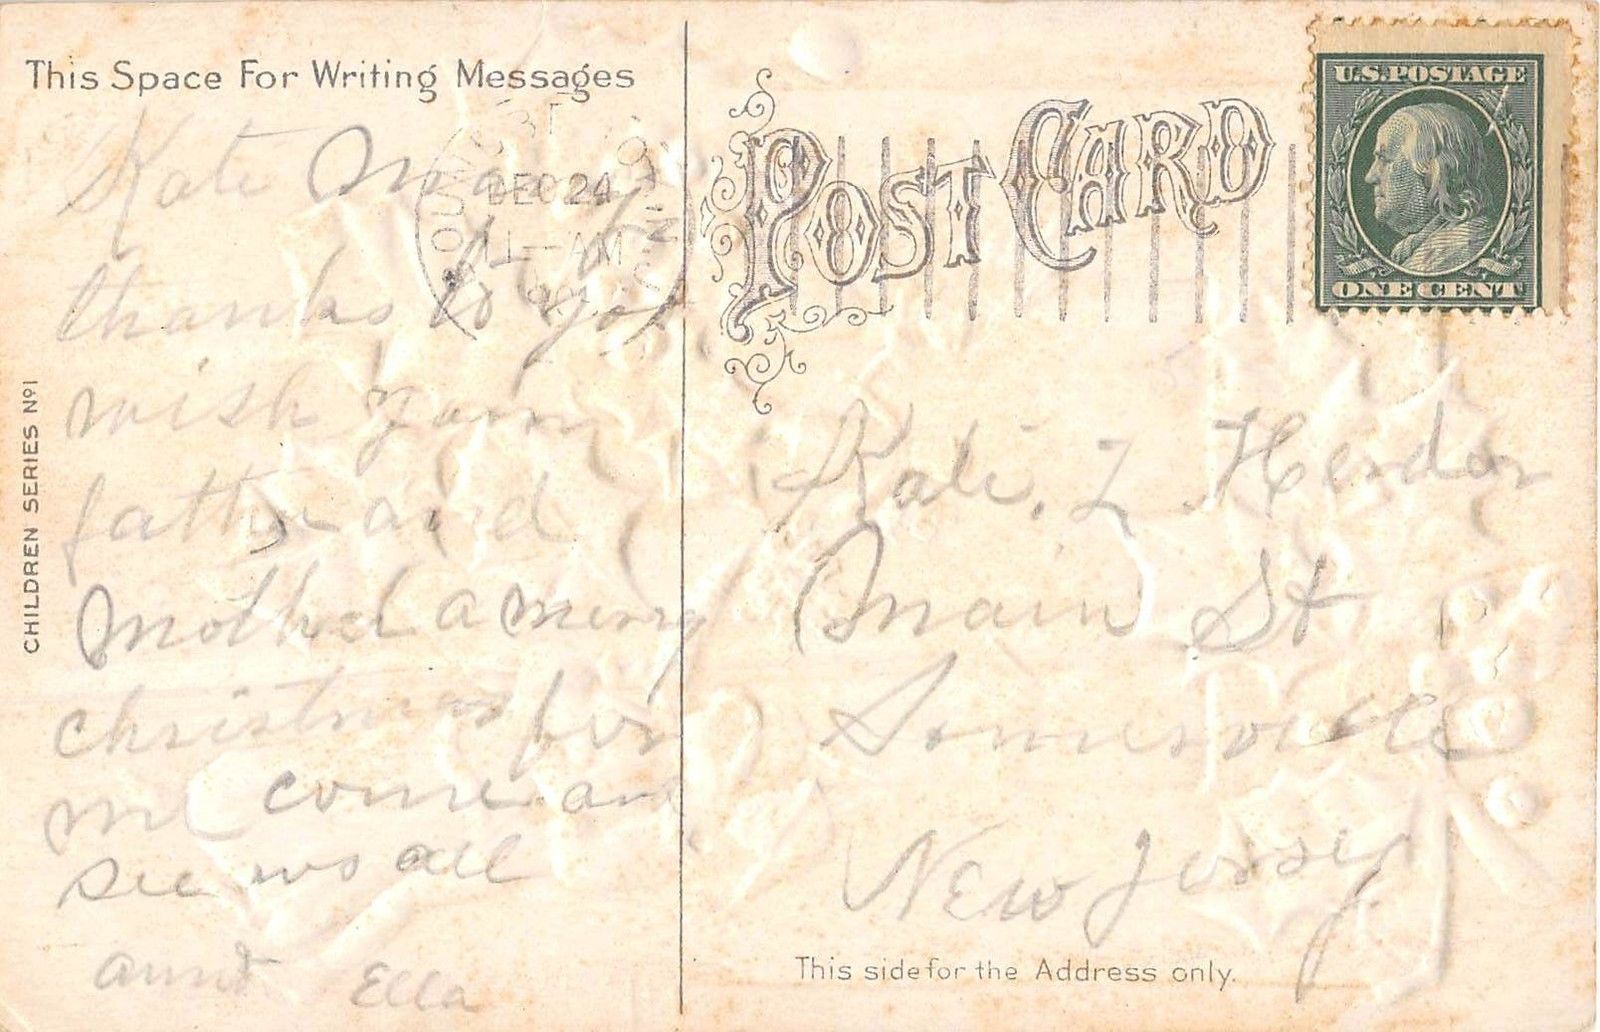 This Space For Writing Messages
Kate Many
thanks to you
wish your
father and
Mother a merry
christmas for
me come and
see us all
aunt Ella
CHILDREN SERIES No 1
DEC 24
11-AM
POST CARD
U.S. POSTAGE
ONE CENT
Kate. L Herder
Main St
Somerville
New Jersey
This side for the Address only.